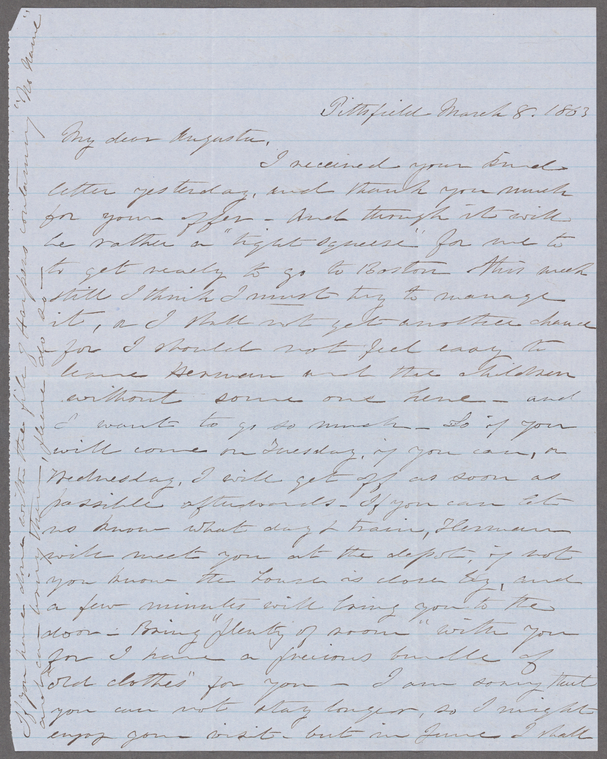 Pittsfield March 8. 1863
My dear Augusta,
I received your kind
letter yesterday, and thank you much
for your offer - And though it will
be rather a "tight squeese" for me to
to get ready to go to Boston this week
still I think I must try to manage
it, as I shall not get another chance
for I should not feel easy to
leave Herman and the Children
without some one here - and
I want to go so much - So if you
will come on Tuesday, if you can, or
Wednesday, I will get off as soon as
possible afterwards - If you can let
us know what day & train, Herman
will meet you at the depot, if not
you know the house is close by, and
a few minutes will bring you to the
door - Bring "plenty of room" with you
for I have a precious bundle of
"old clothes" for you - I am sorry that
you can not stay longer, so I might
enjoy your visit - but in June I shall
If you have done with the file of Harpers containing "No Name"
and can bring them, please do so -